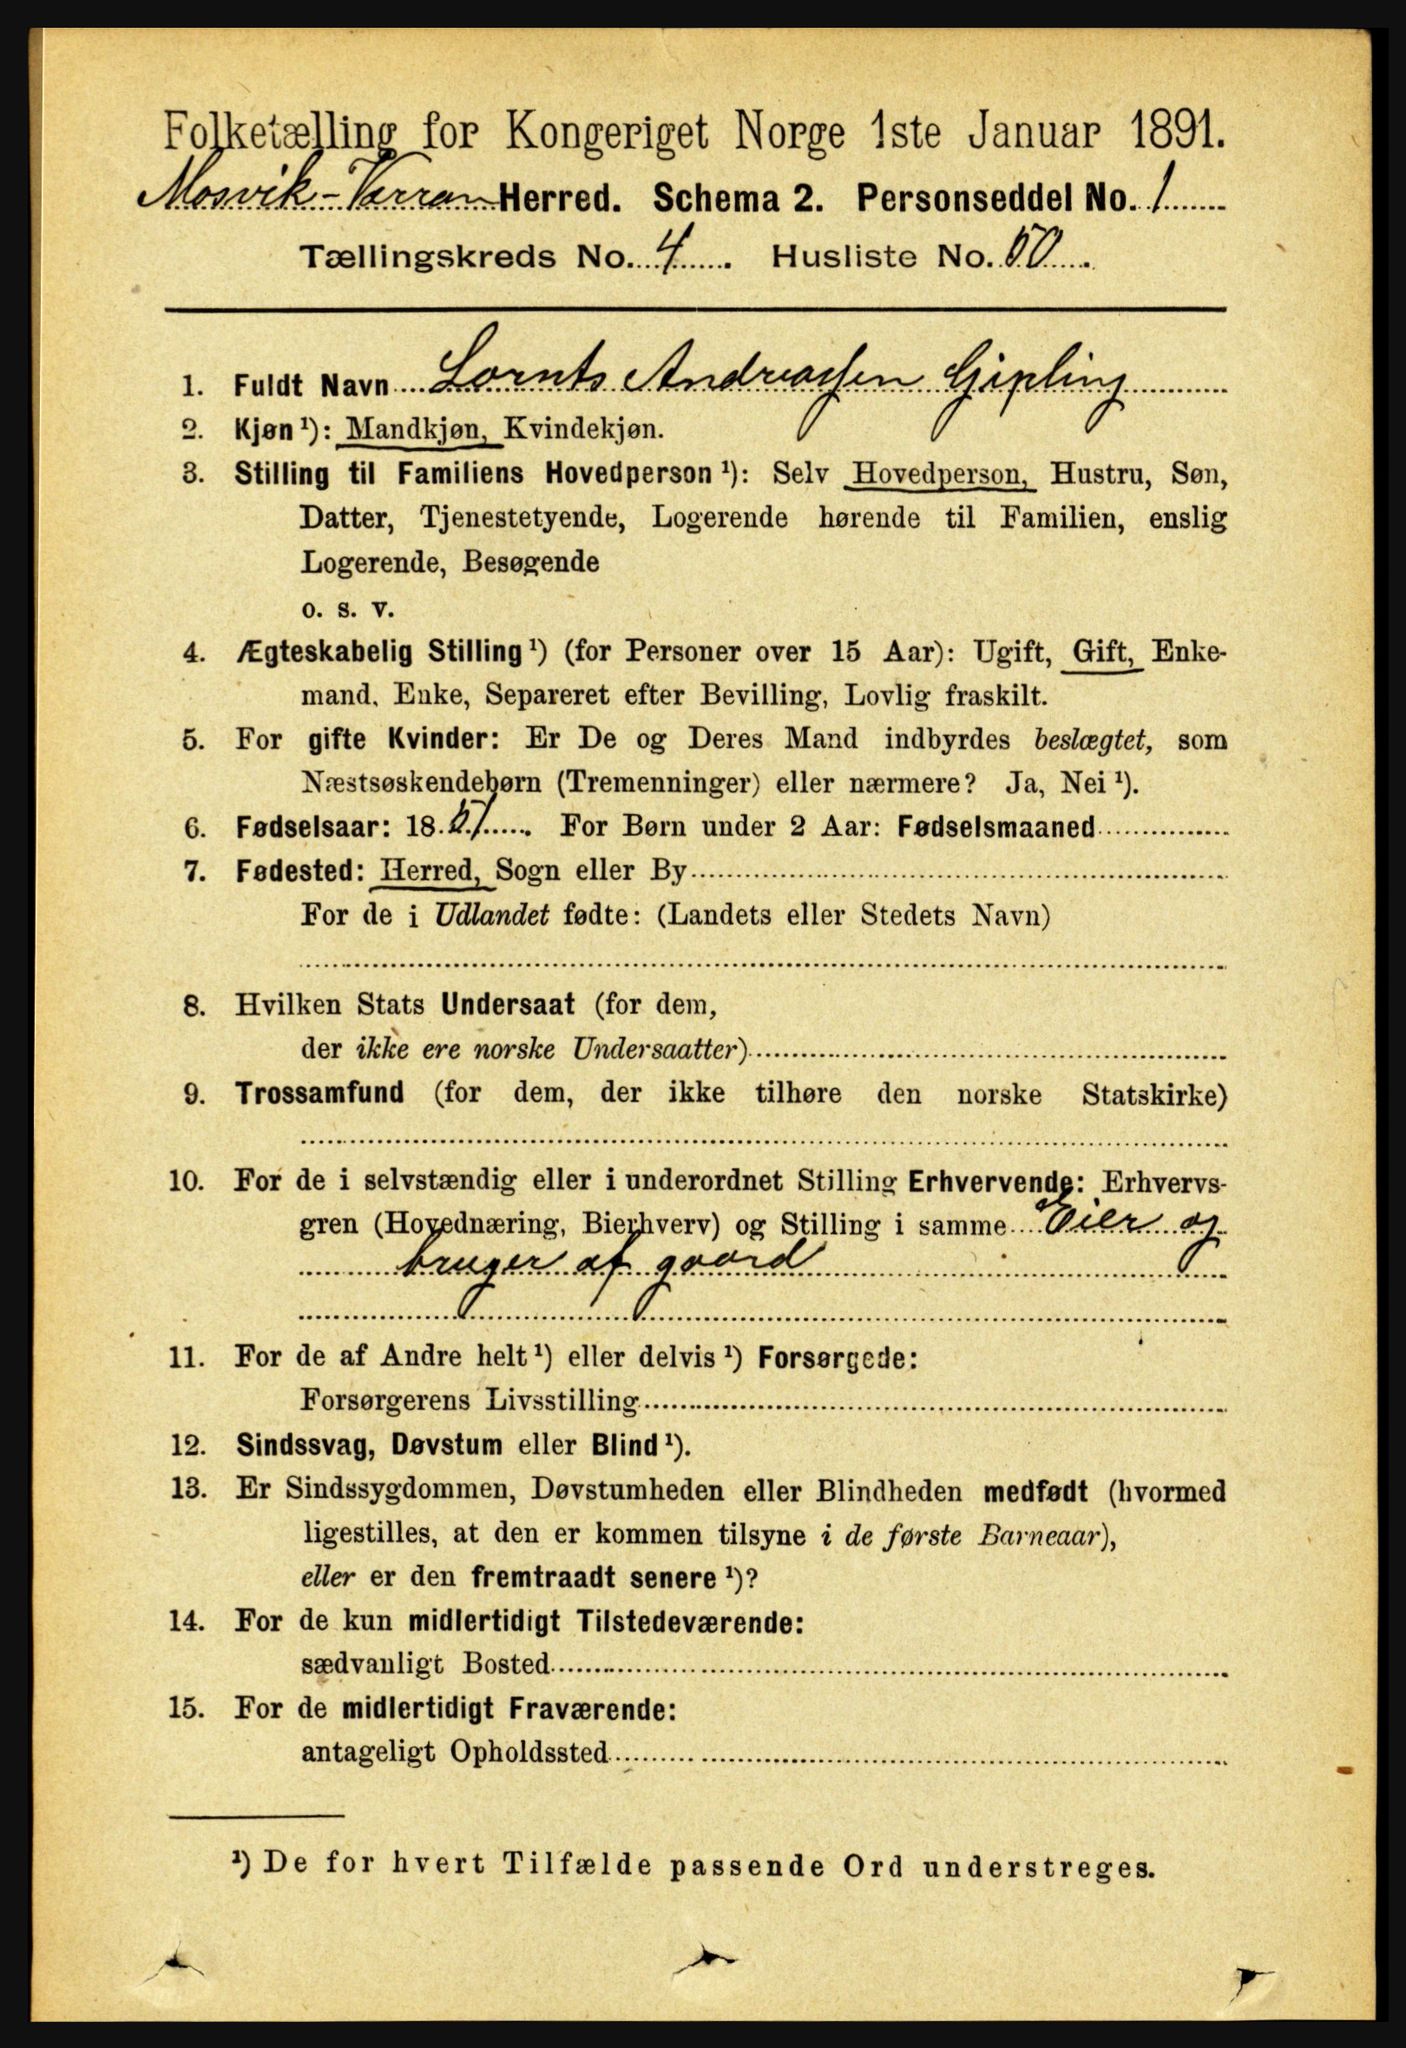 Folketælling for Kongeriget Norge 1ste Januar 1891.
Mosvik-Verran Herred. Schema 2. Personseddel No. 1
Tællingskreds No. 4. Husliste No. 50.
1. Fuldt Navn Lornts Andreassen Gipling
2. Kjøn ¹): Mandkjøn, Kvindekjøn.
3. Stilling til Familiens Hovedperson ¹): Selv Hovedperson, Hustru, Søn,
Datter, Tjenestetyende, Logerende hørende til Familien, enslig
Logerende, Besøgende
o. s. v.
4. Ægteskabelig Stilling ¹) (for Personer over 15 Aar): Ugift, Gift, Enke-
mand, Enke, Separeret efter Bevilling, Lovlig fraskilt.
5. For gifte Kvinder: Er De og Deres Mand indbyrdes beslægtet, som
Næstsøskendebørn (Tremenninger) eller nærmere? Ja, Nei ¹).
6. Fødselsaar: 1851. For Børn under 2 Aar: Fødselsmaaned
7. Fødested: Herred, Sogn eller By
For de i Udlandet fødte: (Landets eller Stedets Navn)
8. Hvilken Stats Undersaat (for dem,
der ikke ere norske Undersaatter)
9. Trossamfund (for dem, der ikke tilhøre den norske Statskirke)
10. For de i selvstændig eller i underordnet Stilling Erhvervende: Erhvervs-
gren (Hovednæring, Bierhverv) og Stilling i samme Eier og
bruger af gaard
11. For de af Andre helt ¹) eller delvis ¹) Forsørgede:
Forsørgerens Livsstilling
12. Sindssvag, Døvstum eller Blind ¹).
13. Er Sindssygdommen, Døvstumheden eller Blindheden medfødt (hvormed
ligestilles, at den er kommen tilsyne i de første Barneaar),
eller er den fremtraadt senere ¹)?
14. For de kun midlertidigt Tilstedeværende:
sædvanligt Bosted
15. For de midlertidigt Fraværende:
antageligt Opholdssted
¹) De for hvert Tilfælde passende Ord understreges.